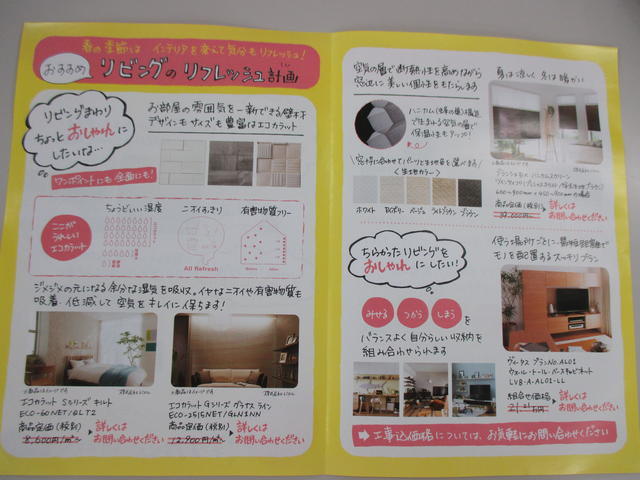 春の季節は インテリアを変えて気分もリフレッシュ!
おすすめ リビングの リフレッシュ計画
リビングまわり
ちょっとおしゃれに
したいな…
お部屋の雰囲気を一新できる壁材
デザインもサイズも豊富なエコカラット
ワンポイントにも全面にも!
ここが
うれしい
エコカラット
ちょうどいい湿度
ニオイすっきり
有害物質フリー
All Refresh
ジメジメの元になる余分な湿気を吸収。イヤなニオイや有害物質も
吸着・低減して空気をキレイに保ちます!
エコカラット Sシリーズ キルト
ECO-60NET/QLT2
商品定価(税別)
8,600円/㎡~
詳しくは
お問い合わせください
エコカラット Gシリーズ グラナス ライン
ECO-2515NET/GLN1NN
商品定価(税別)
12,900円/㎡~
詳しくは
お問い合わせください
空気の層で断熱性を高めながら
窓辺に美しい個性をもたらします
ハニカム(蜂の巣)構造
で生まれる空気の層で
保温性もアップ!
夏は涼しく 冬は暖かい
窓枠に合わせてパーツと生地色を選べます
〈生地カラー〉
ホワイト
ベージュ
ライトブラウン
ブラウン
商品定価(税別)
詳しくは
お問い合わせください
ちらかったリビングを
おしゃれにしたい!
みせる
つかう
しまう
を
バランスよく自分らしい収納を
組み合わせられます
使う場所ごとに、
モノを配置するスッキリプラン
ヴィータス プランNo.AL01
ウォール・トール・ベースキャビネット
LVB-A-AL01-LL
組合せ価格(税別)
詳しくは
お問い合わせください
工事込価格については、お気軽にお問い合わせください